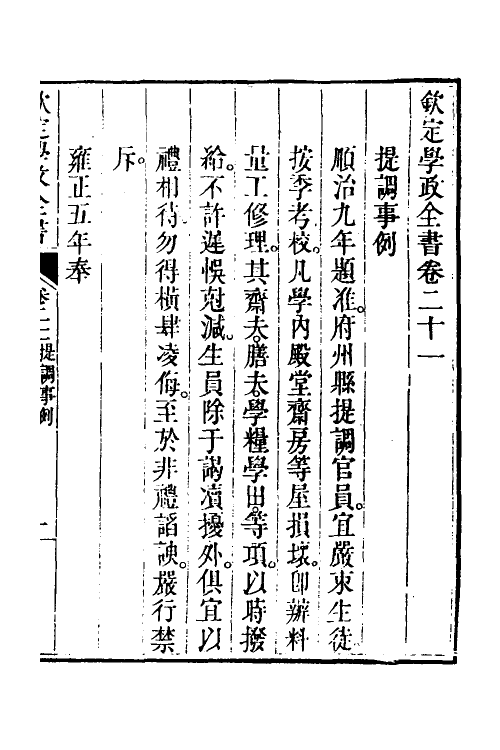 欽定學政全書卷二十一
提調事例
順治九年題准。府州縣提調官員。宜嚴束生徒
按季考校。凡學內殿堂齋房等屋損壞。卽辦料
量工修理。其齋夫。膳夫。學糧學田。等項。以時撥
給。不許遲悞尅減。生員除于謁瀆擾外。俱宜以
禮相待勿得橫肆凌侮。至於非禮諂諛。嚴行禁
斥。
雍正五年奉
欽定學政全書 卷二十一提調事例 一